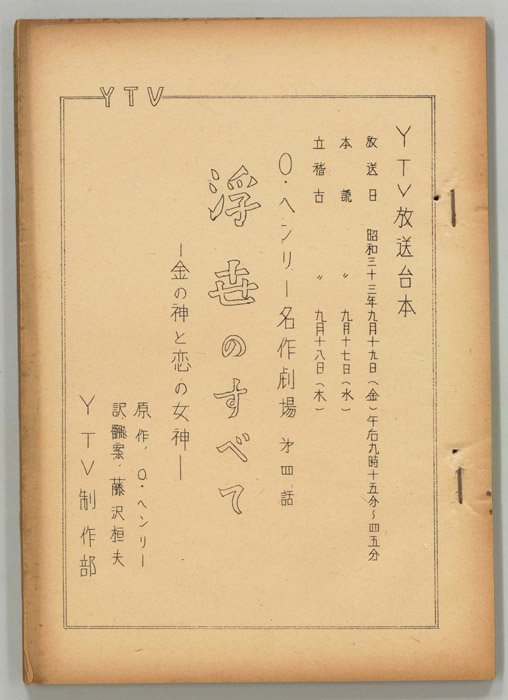 YTV
YTV放送台本
放送日 昭和三十三年九月十九日(金)午后九時十五分~四五分
本読 〃 九月十七日(水)
立稽古 〃 九月十八日(木)
O・ヘンリー名作劇場 才四話
浮世のすべて
―金の神と恋の女神―
原作、O・ヘンリー
訳飜案、藤沢桓夫
YTV制作部